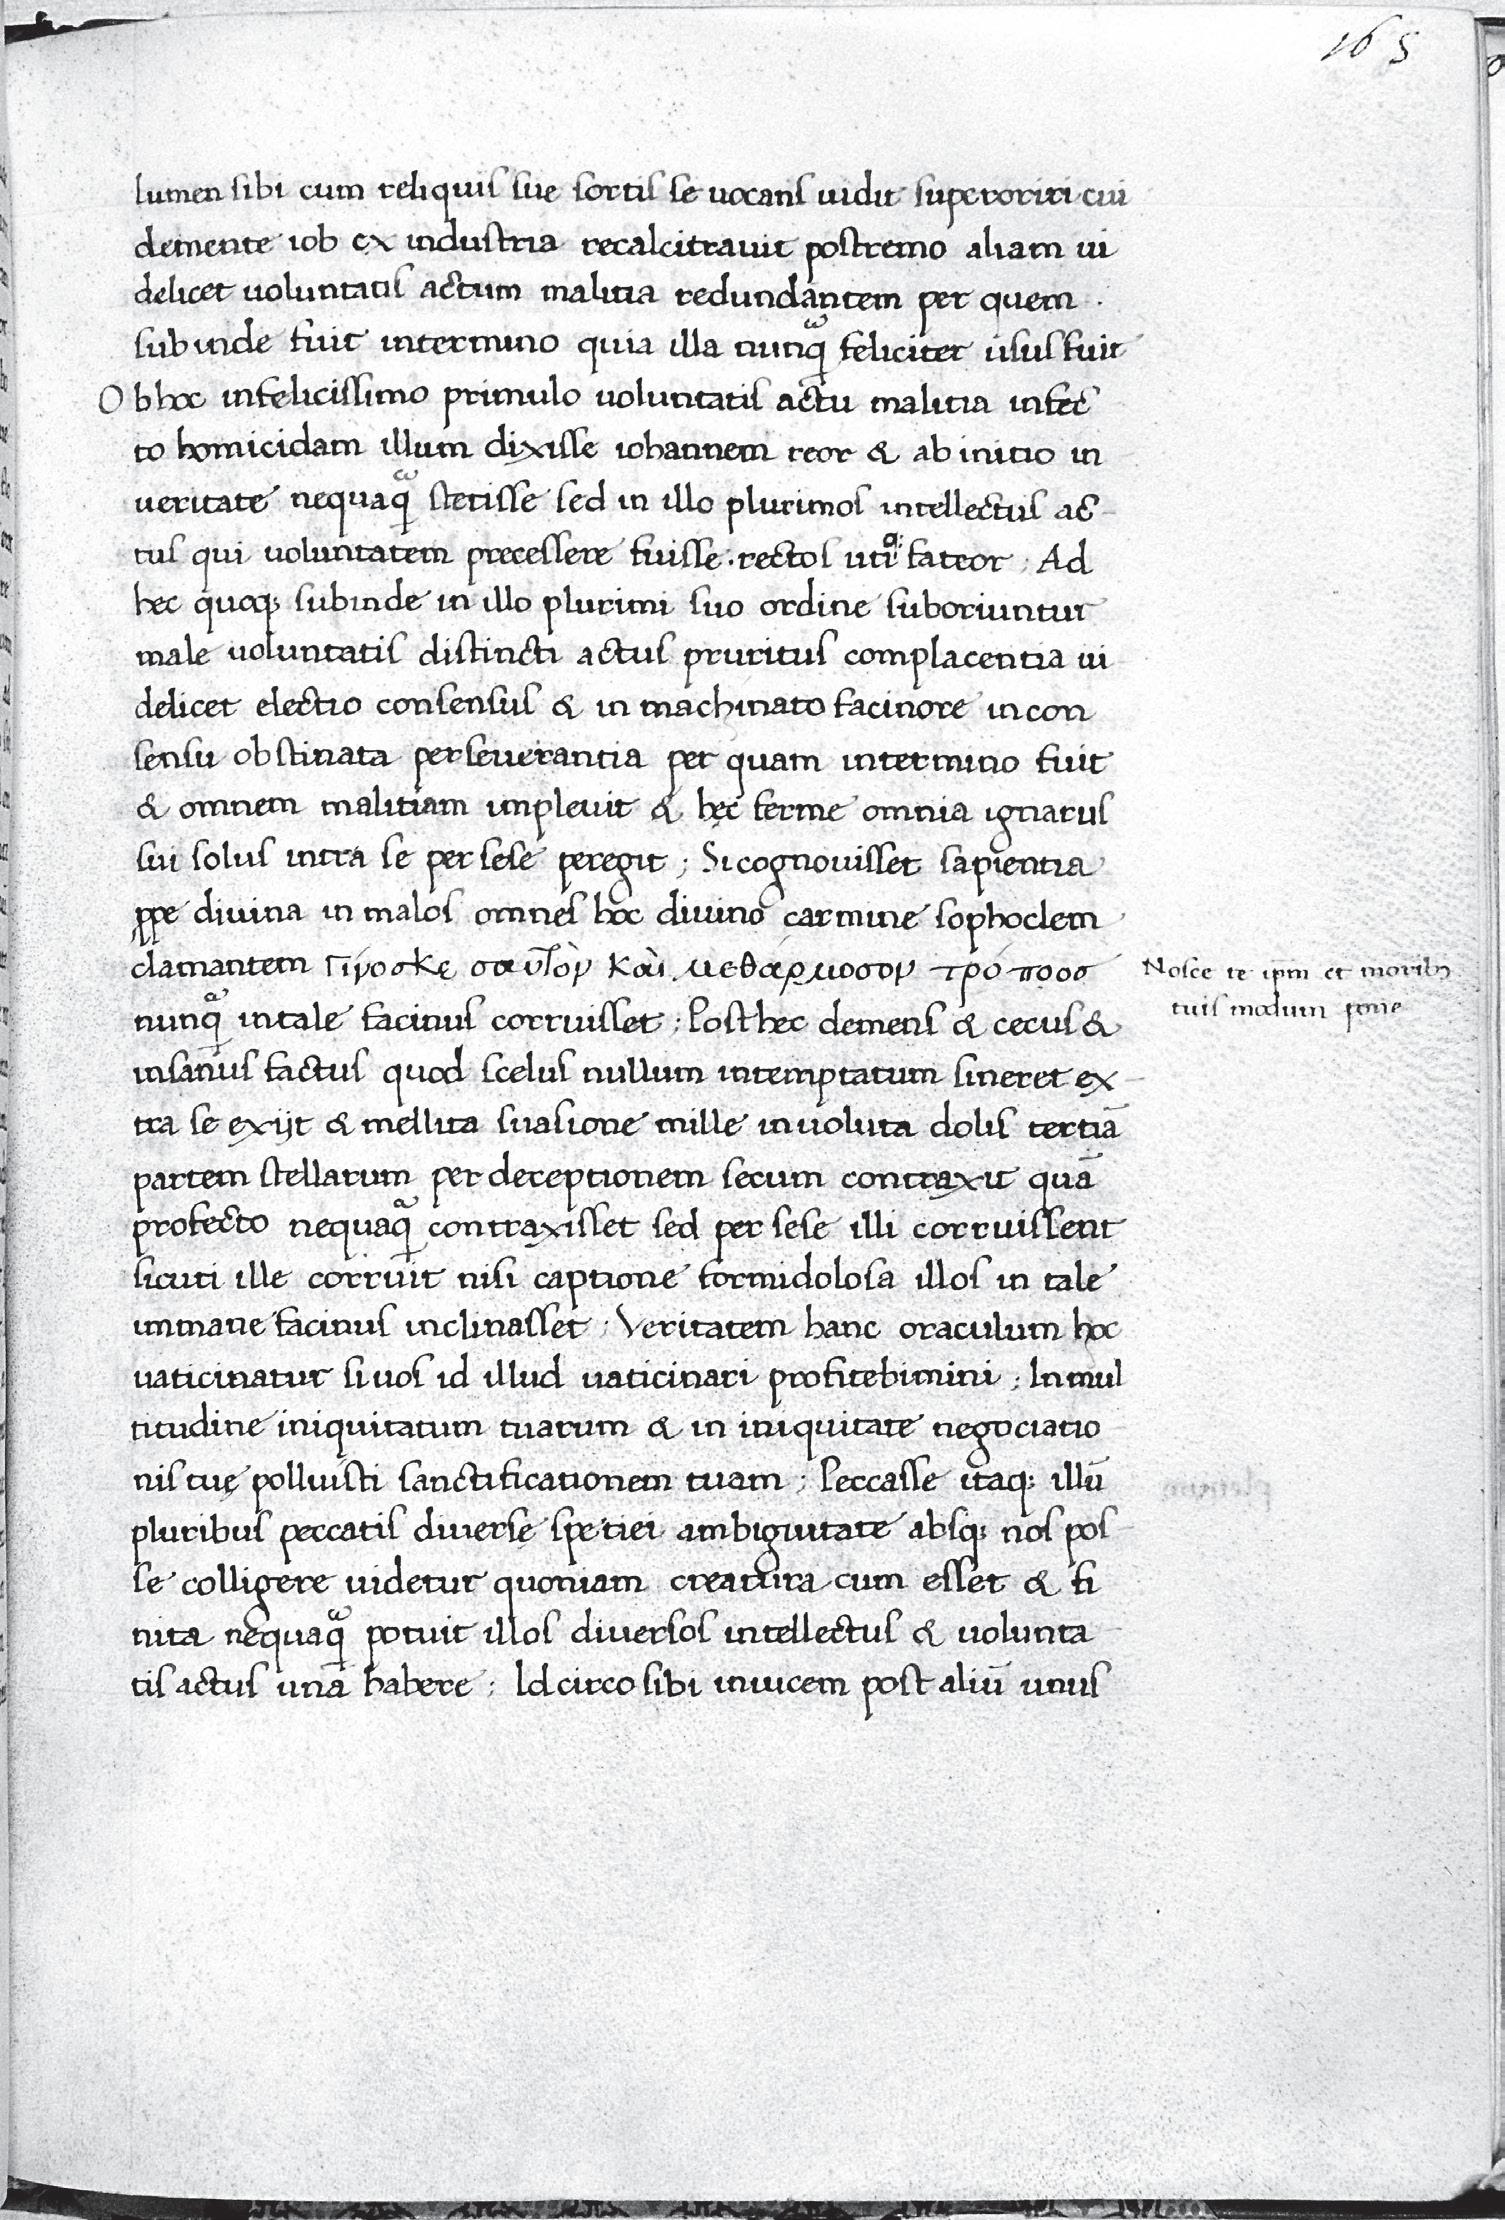 165
lumen sibi cum reliquis sue sortis se uocans uidit superoriri cui
demente iob ex industria recalcitrauit postremo aliam ui
delicet uoluntatis actum malitia redundantem per quem
subinde fuit intermino quia illa nunq̃ feliciter usus fuit
Ob hoc infelicissimo primulo uoluntatis actu malitia infec
to homicidam illum dixisse iohannem reor & ab initio in
ueritate nequaq̃ stetisse sed in illo plurimos intellectus ac
tus qui uoluntatem precessere fuisse rectos fateor ; Ad
hec quoq; subinde in illo plurimi suo ordine suboriuntur
male uoluntatis distincti actus pruritus complacentia ui
delicet electio consensus & in machinato facinore in con
sensu obstinata perseuerantia per quam intermino fuit
& omnem malitiam impleuit & hęc ferme omnia ignarus
sui solus intra se per sese peregit ; Si cognouisset sapientia
ꝓpe diuina in malos omnes hoc diuino carmine sophoclem
clamantem γίνοσκε σαυτὸν καὶ μεθάρμοσον τρόποσ
Nosce te ipm et moribꝫ
tuis modum pone
nunq̃ in tale facinus corruisset ; Post hec demens & cecus &
insanus factus quod scelus nullum intemptatum sineret ex
tra se exijt & mellita suasione mille inuoluta dolis tertiā
partem stellarum per deceptionem secum contraxit quā
profecto nequaq̃ contraxisset sed per sese illi corruissent
sicuti ille corruit nisi captione formidolosa illos in tale
immane facinus inclinasset ; Veritatem hanc oraculum hoc
uaticinatur si uos id illud uaticinari profitebimini ; In mul
titudine iniquitatum tuarum & in iniquitate negociatio
nis tuę polluisti sanctificationem tuam ; Peccasse itaq; illū
pluribus peccatis diuerse spetiei ambiguitate absq; nos pos
se colligere uidetur quoniam creatura cum esset & fi
nita nequaq̃ potuit illos diuersos intellectus & uolunta
tis actus unā habere ; Idcirco sibi inuicem post aliū unus